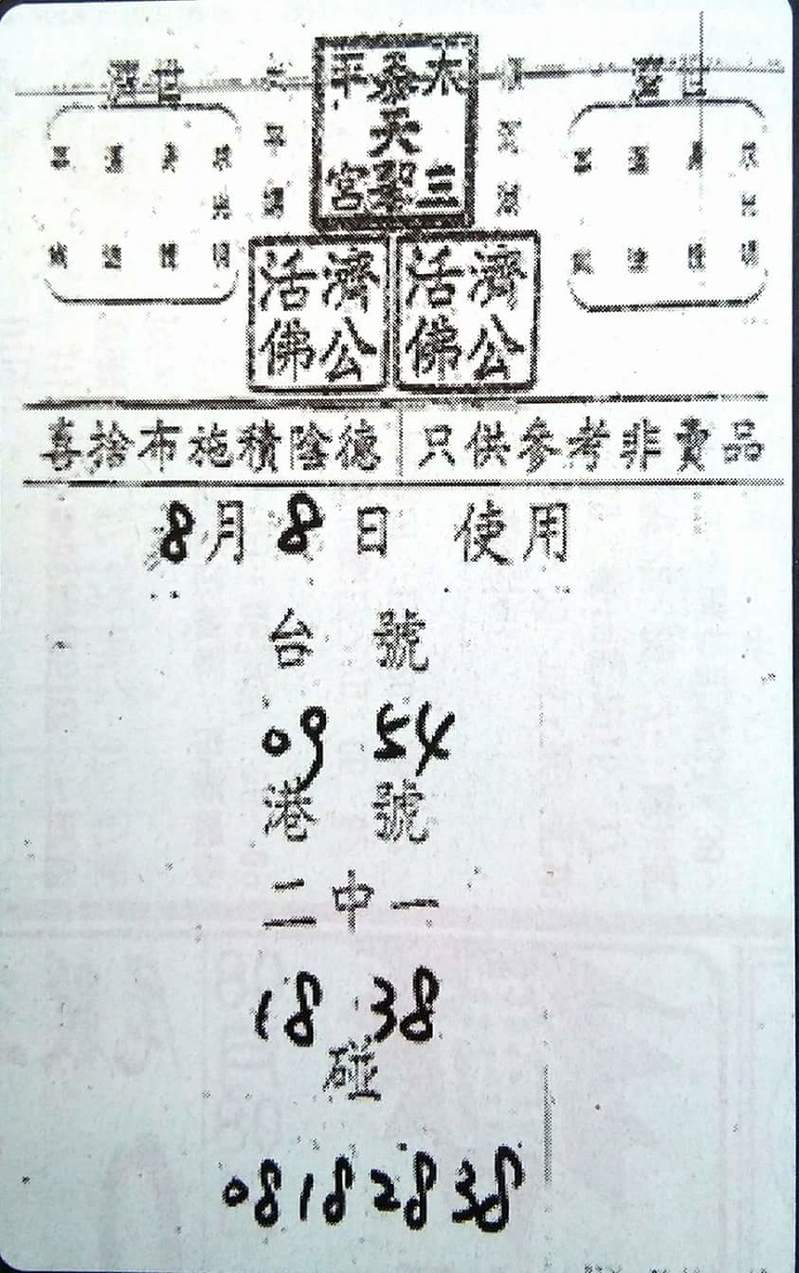 太叁平
天
三聖宮
濟公活佛
濟公活佛
喜捨布施積陰德 只供參考非賣品
8月8日 使用
台 號
09 54
港 號
二中一
18 38
碰
08 18 28 38